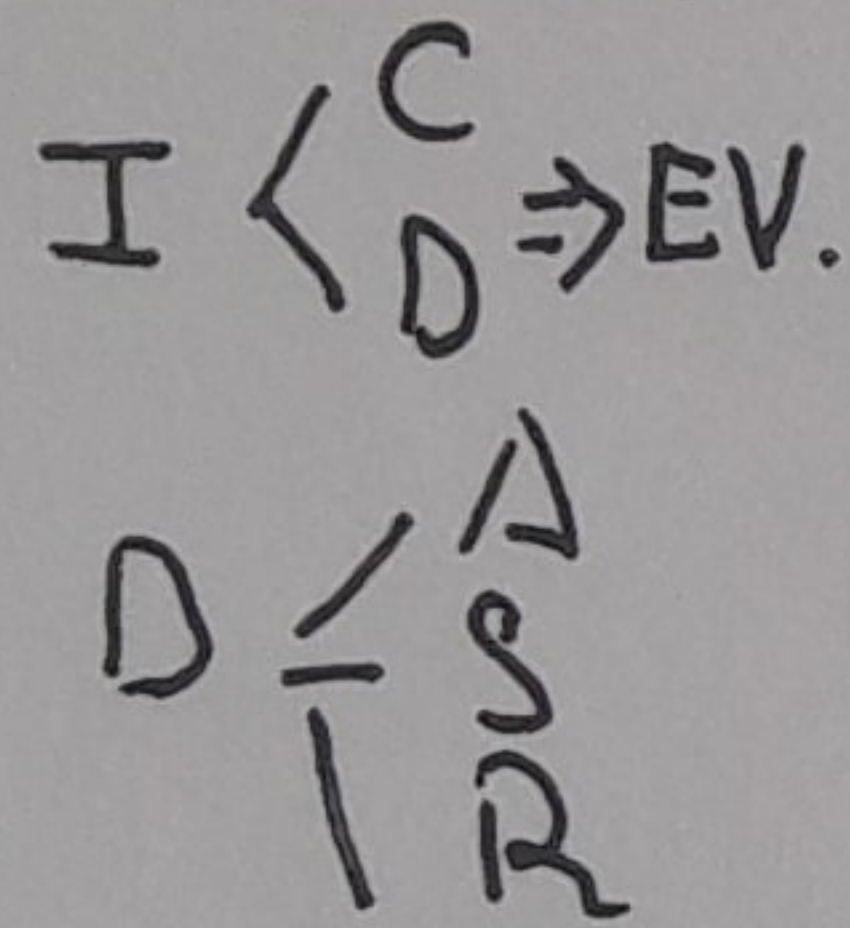 I < C
D ⇒ EV.
D A
S
R